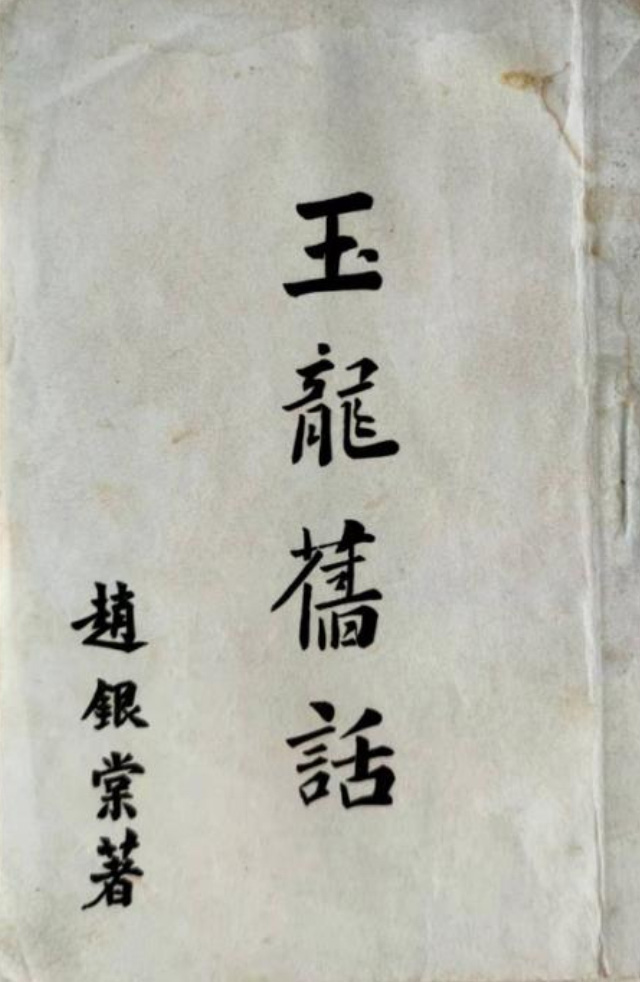 玉龍舊話
趙銀棠著